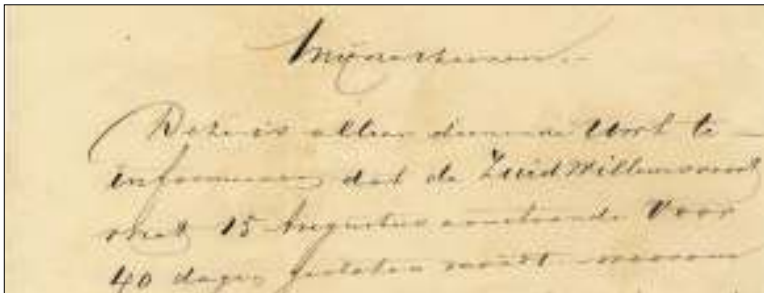 Mijne Heeren.
Deze is alleen dienende UEd te
informeren dat de Zuid Willemsvaart
met 15 Augustus aanstaande voor
40 dagen gesloten wordt waarom